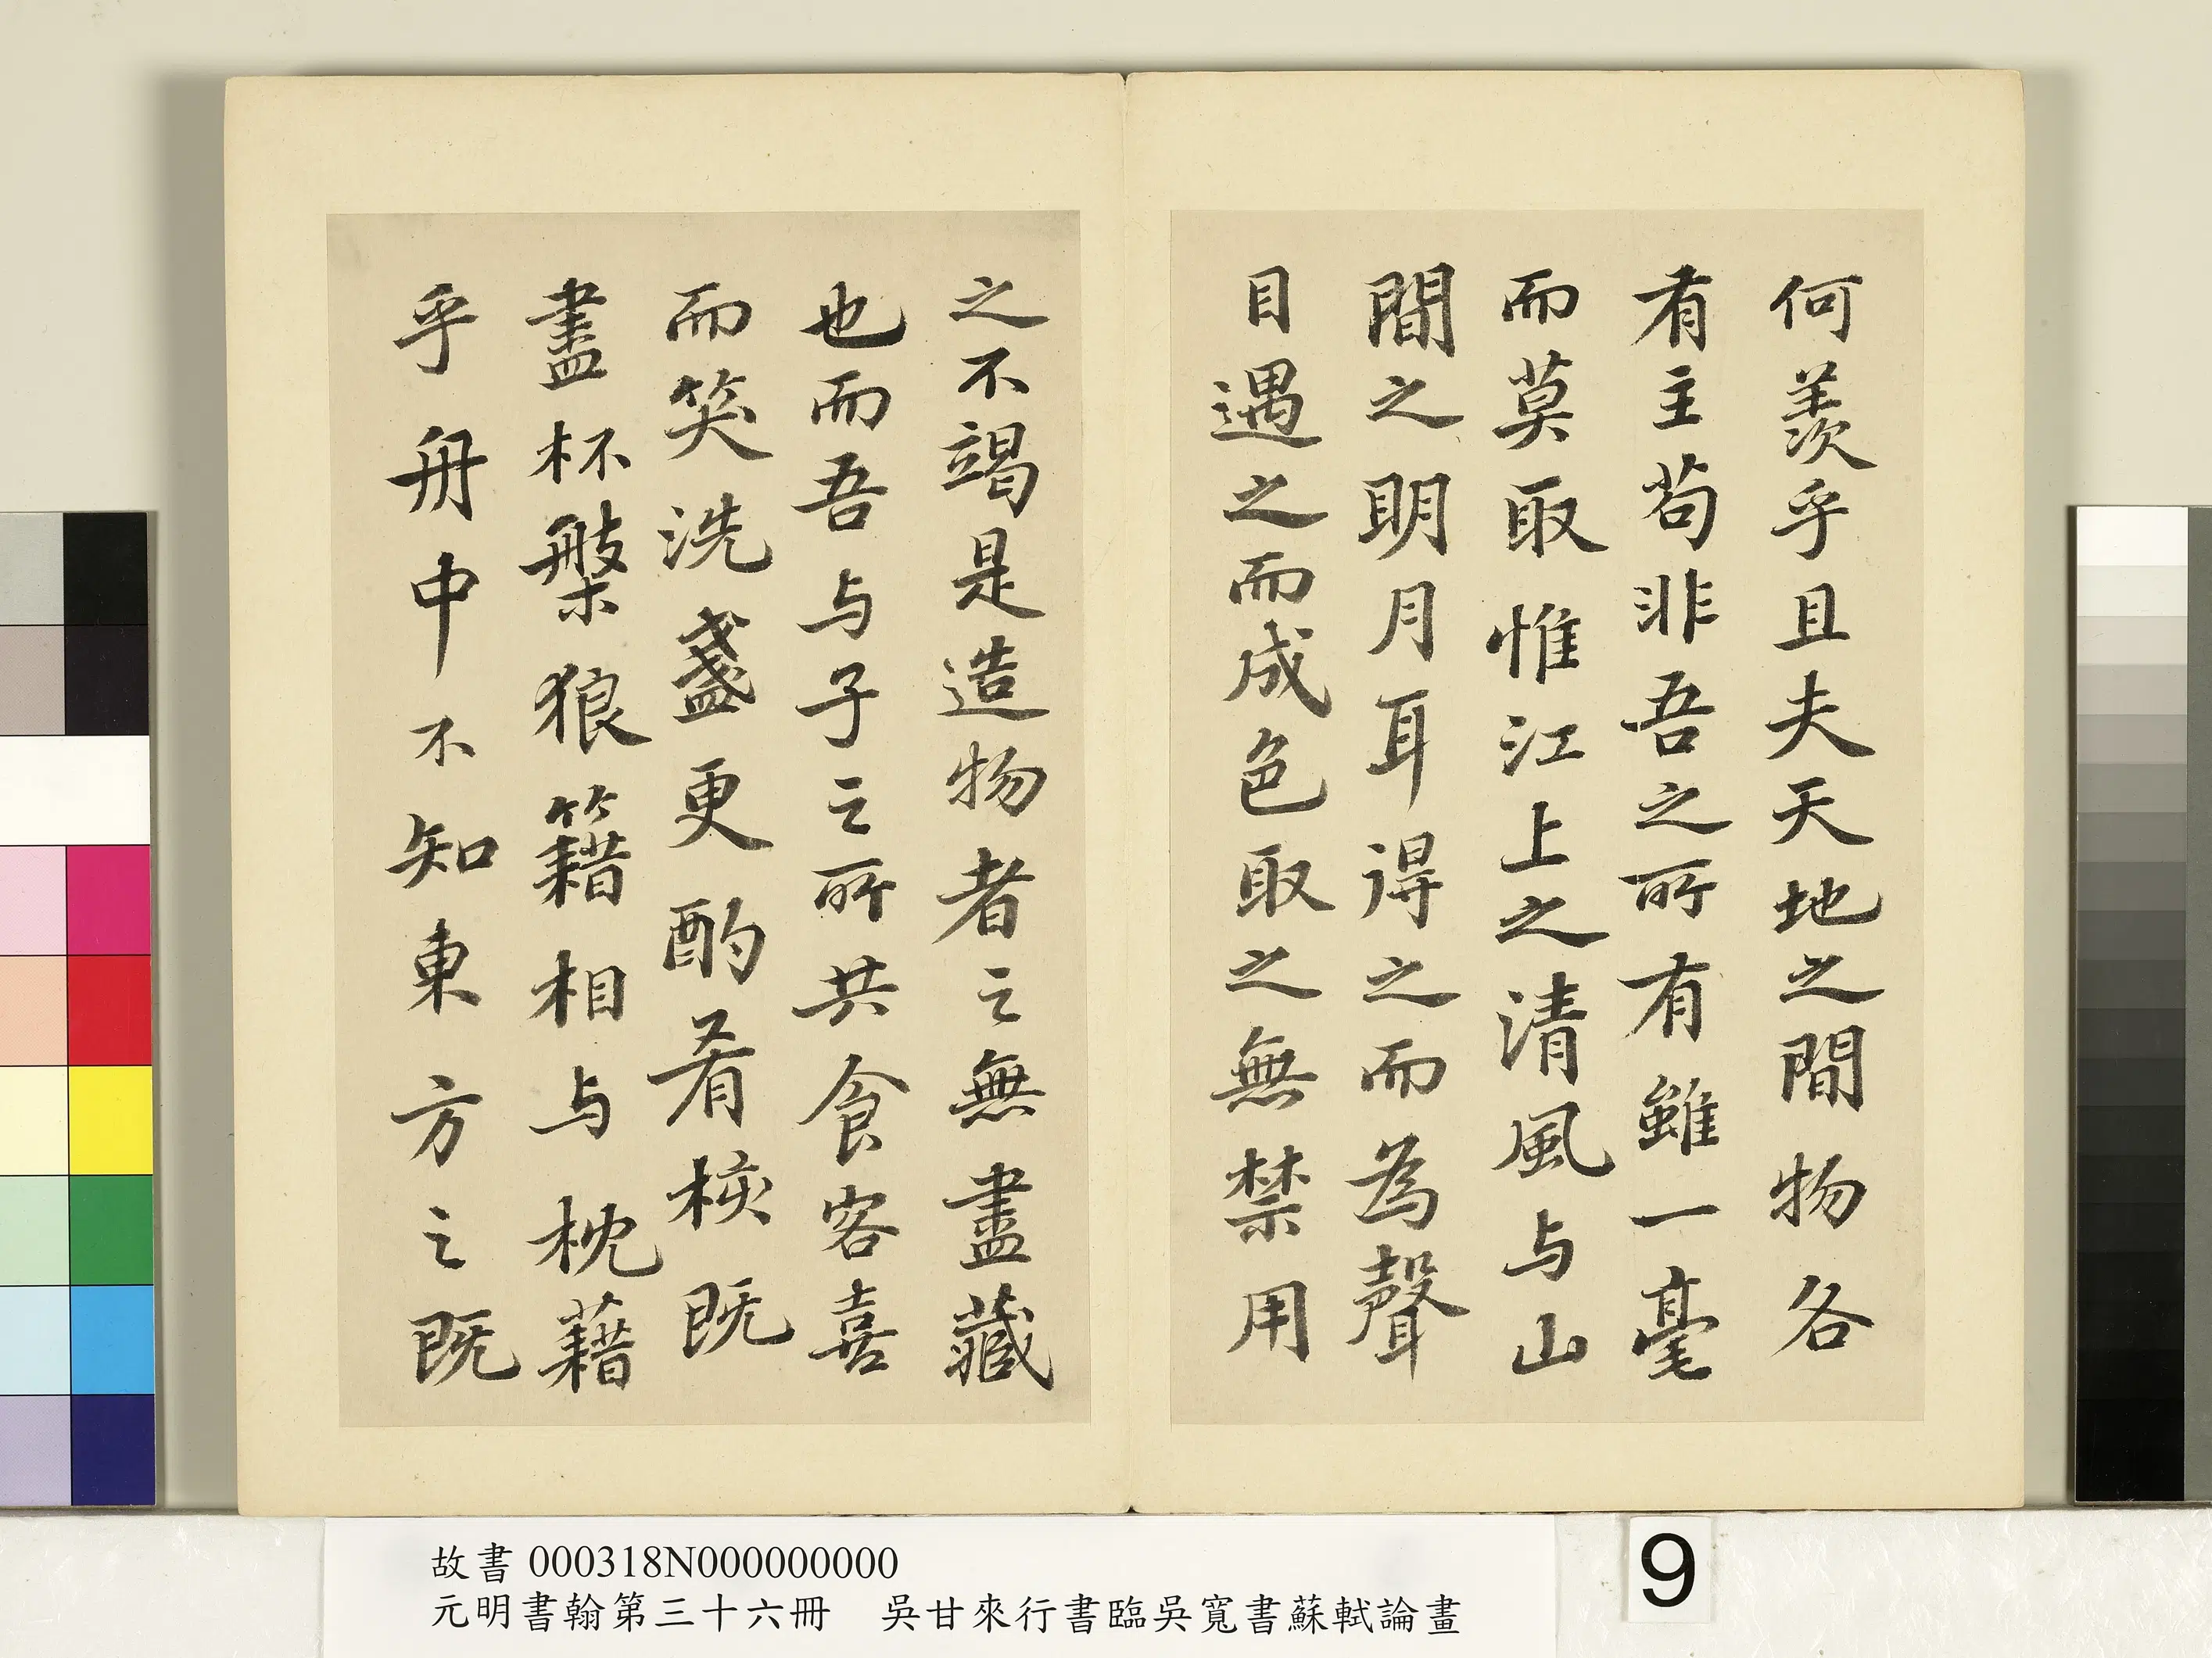 何羨乎且夫天地之間物各
有主苟非吾之所有雖一毫
而莫取惟江上之清風与山
間之明月耳得之而為聲
目遇之而成色取之無禁用
之不竭是造物者之無盡藏
也而吾与子之所共食客喜
而笑洗盞更酌肴核既
盡杯槃狼籍相与枕藉
乎舟中不知東方之既
故書 000318N000000000
元明書翰第三十六冊　吳甘來行書臨吳寬書蘇軾論畫
9